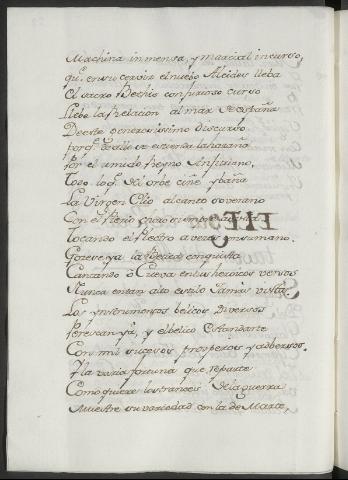 Machina inmensa, y marcial incurso,
qu. en su cerviz el nuebo Alcides lleba
El sacro Bethis con furioso curso
llebe la Relacion al mar de españa
De este generosissimo Discurso.
porq. de alli se estienda la hazaña
Por el umido Reyno
Todo lo q. el orbe ciñe y baña
La Virgen Clio al canto soverano
Con el
Tocando el Plectro a veces inhumano.
Gozese ya la Betica conquista
Cantando ò Cueva en tus heroicos versos
Nunca en tan alto estilo Jamas vista.
Los ynstrumentos belicos Diversos
Perescan ya, y el belico estandarte
Con mil sucesos prosperos y adbersos.
Y la varia fortuna que reparte
Como quiere los trances de la guerra
Muestre su variedad con la de Marte,